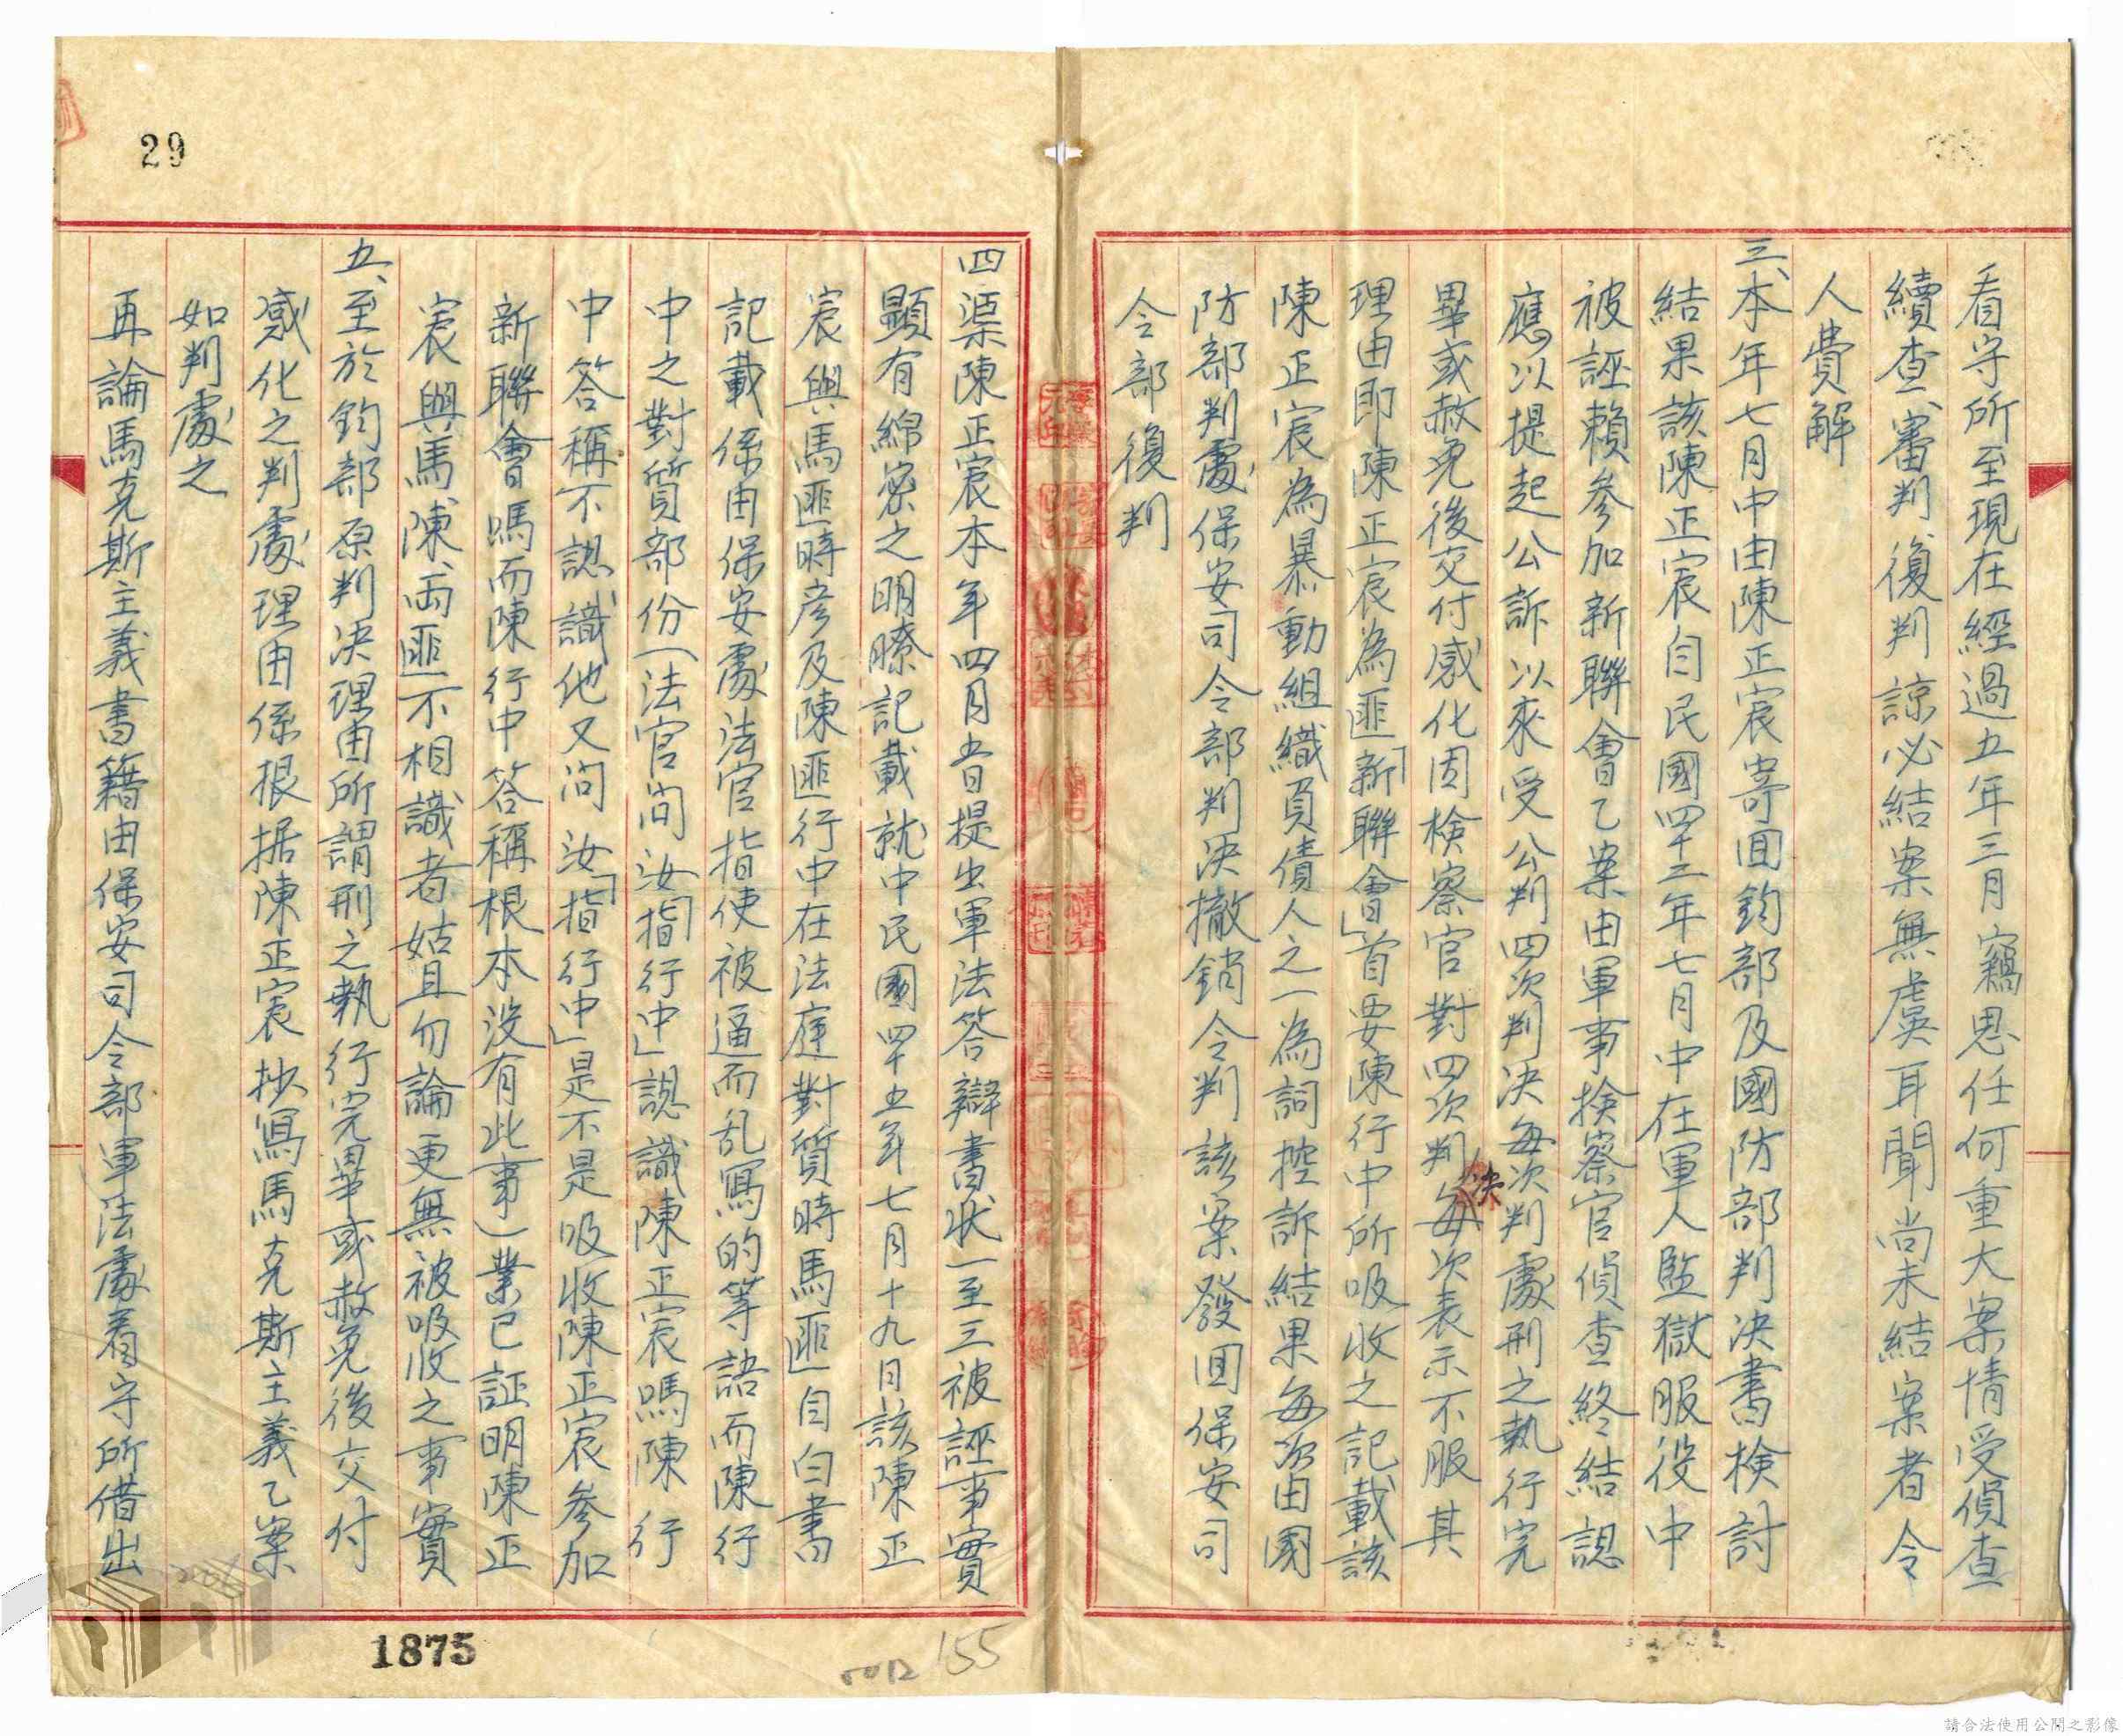 看守所至現在經過五年三月竊思任何重大案情受偵查
續查、審判、復判諒必結案無虞耳聞尚未結案者令
人費解
三、本年七月中由陳正宸寄回鈞部及國防部判決書檢討
結果該陳正宸自民國四十三年七月中在軍人監獄服役中
被誣賴參加新聯會乙案由軍事檢察官偵查終結認
應以提起公訴以來受公判四次判決每次判處刑之執行完
畢或赦免後交付感化因檢察官對四次判決每次表示不服其
理由即陳正宸為匪「新聯會」首要陳行中所吸收之記載該
陳正宸為暴動組織負債人之一為詞控訴結果每次由國
防部判處保安司令部判決撤銷令判該案發回保安司
令部復判
四、渠陳正宸本年四月廿日提出軍法答辯書狀一至三被誣事實
顯有綿密之明瞭記載就中民國四十五年七月十九日該陳正
宸與馬匪時彥及陳匪行中在法庭對質時馬匪自白書
記載係由保安處法官指使被逼而乱寫的等語而陳行
中之對質部份(法官问汝「指行中」認識陳正宸嗎陳行
中答稱不認識他又问汝「指行中」是不是吸收陳正宸參加
新聯會嗎而陳行中答稱根本没有此事)業已証明陳正
宸與馬、陳、兩匪不相識者姑且勿論更無被吸收之事實
五、至於鈞部原判決理由所謂刑之執行完畢或赦免後交付
感化之判處理由係根据陳正宸抄寫馬克斯主義乙案
如判處之
再論馬克斯主義書籍由保安司令部軍法處看守所借出
29
1875
155
請合法使用公開之影像